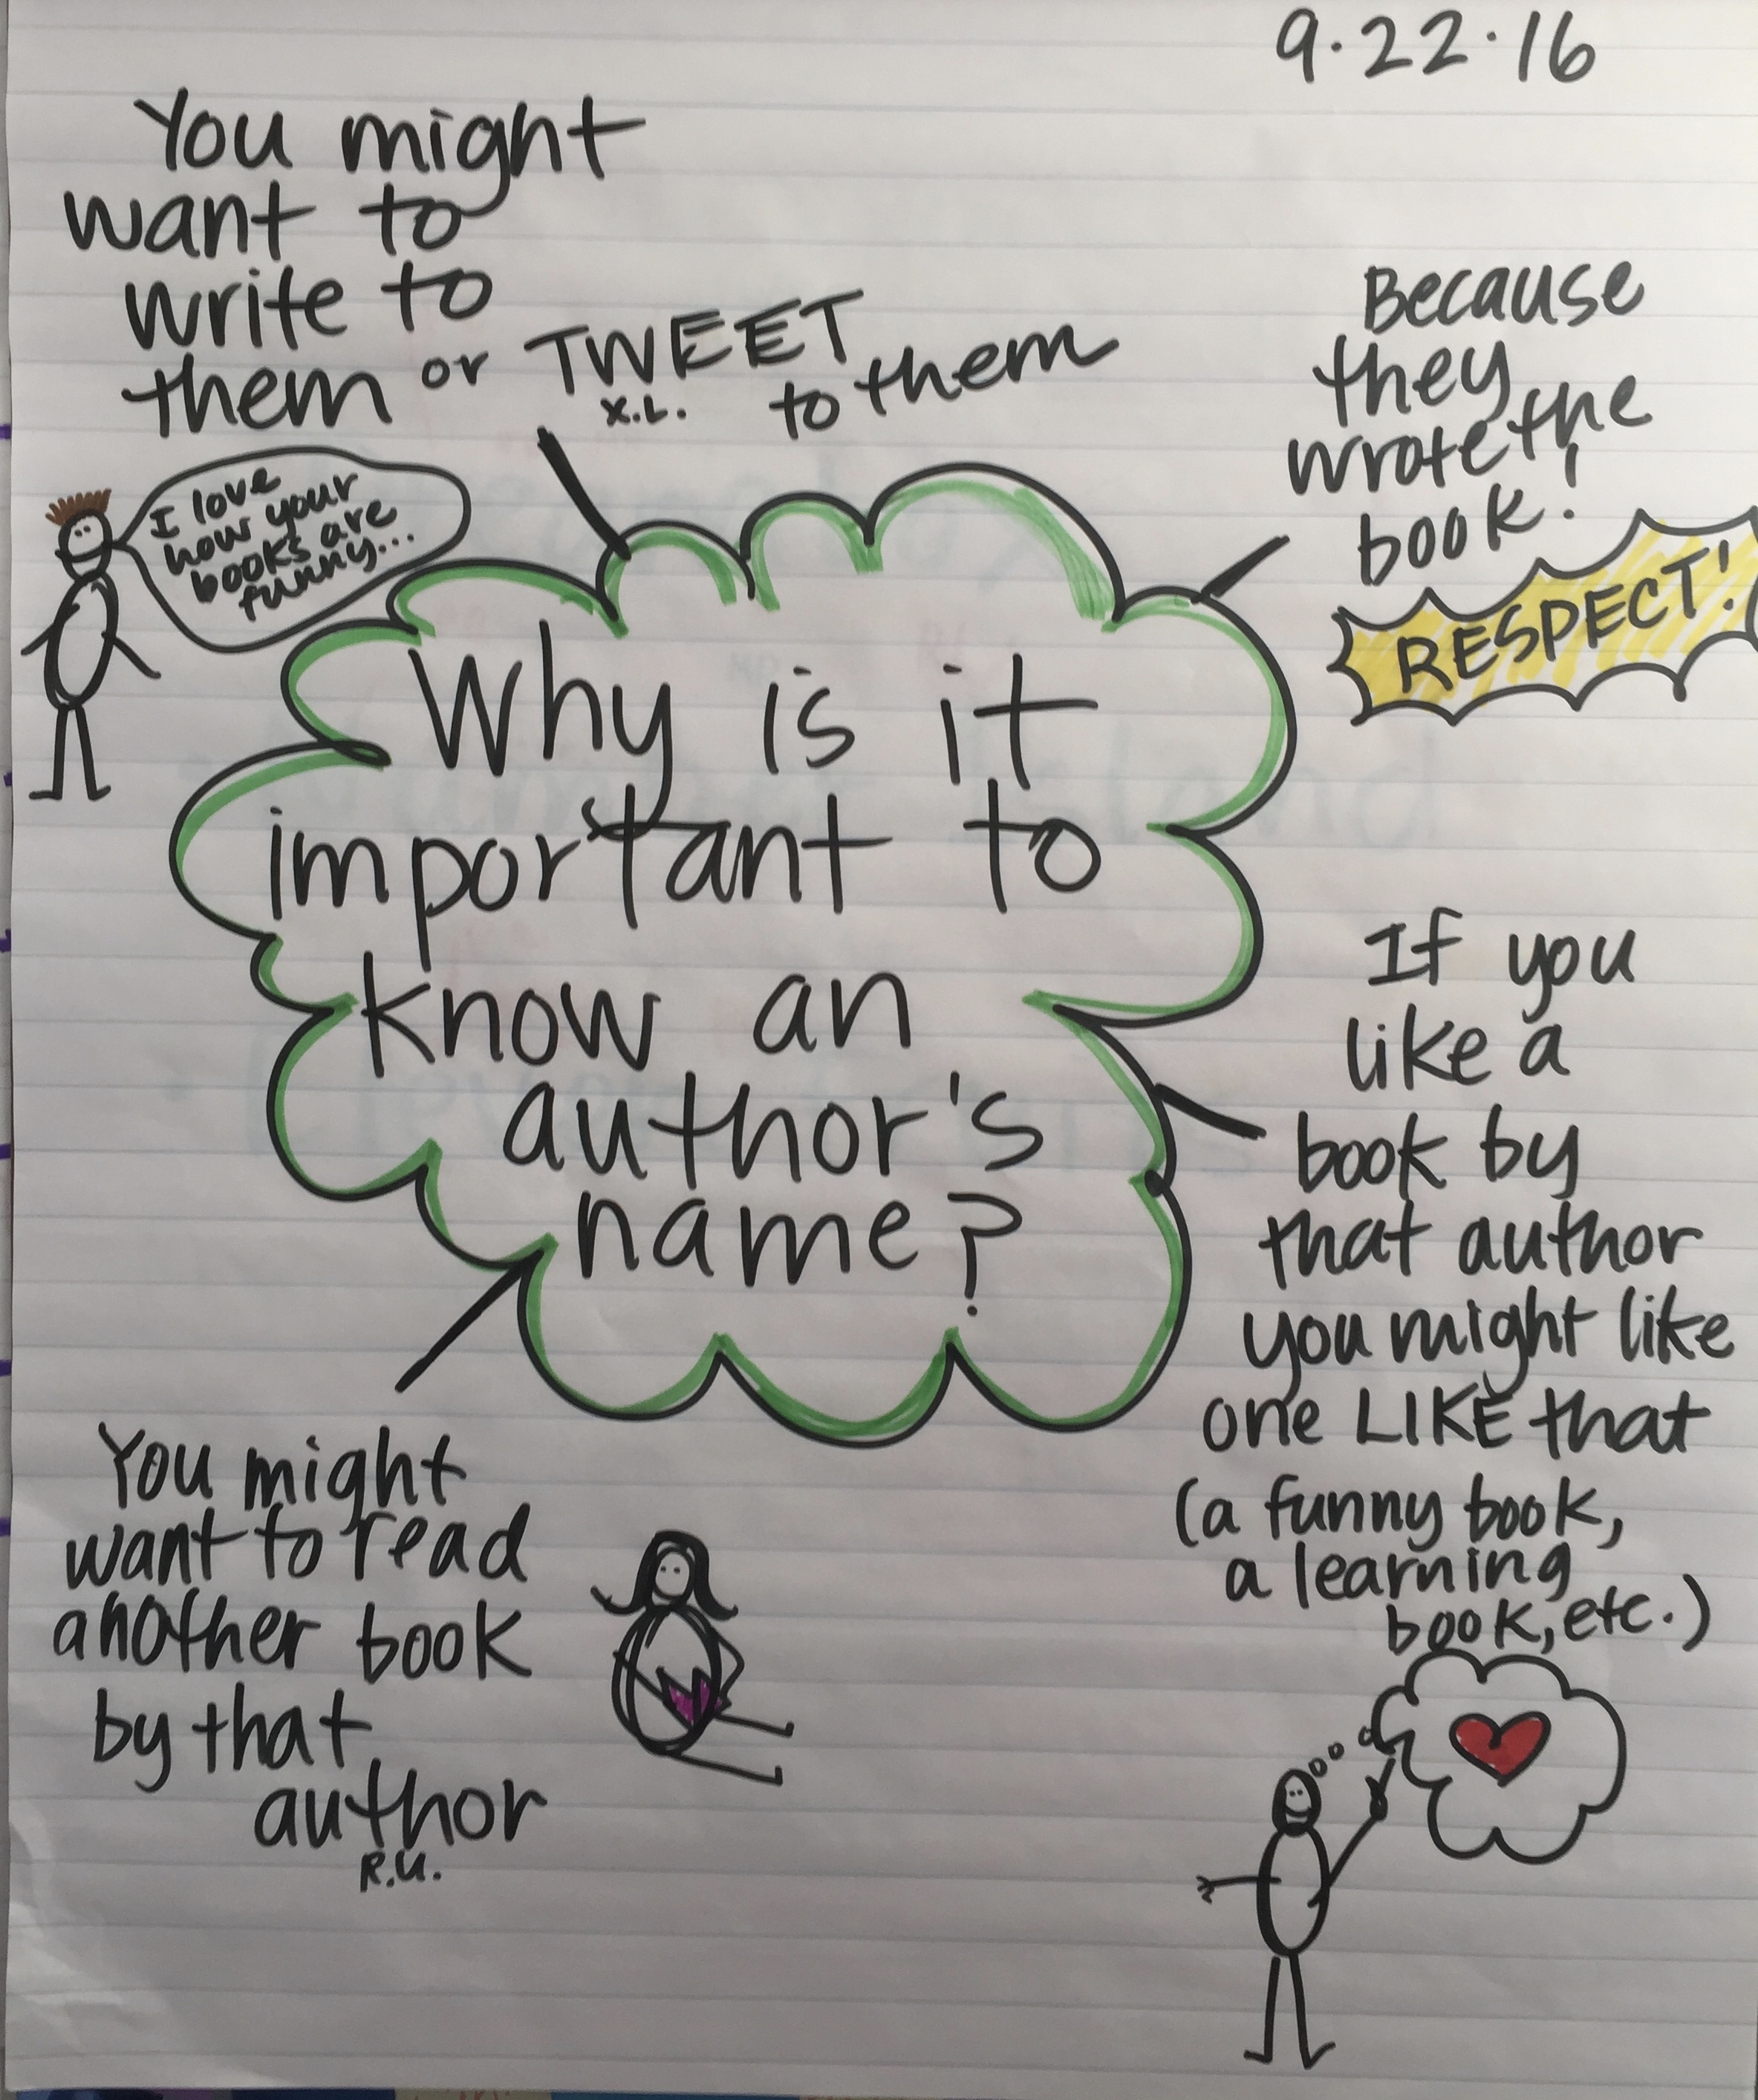 9.22.16
You might
want to
write to
them or TWEET to them
X.L.
I love
how your
books are
funny...
Because
they
wrote the
book!
RESPECT!
Why is it
important to
know an
author's
name?
If you
like a
book by
that author
you might like
one LIKE that
(a funny book,
a learning
book, etc.)
You might
want to read
another book
by that
author
R.U.